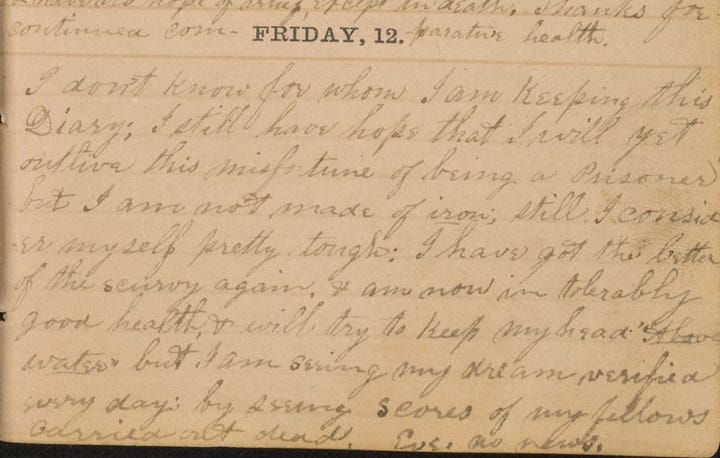 have no hope of relief, except in death. Thanks for
continued com- FRIDAY, 12. parative health.
I don't know for whom I am Keeping this
Diary; I still have hope that I will yet
outliva this misfortune of being a Prisoner
but I am not made of iron; still I consid
-er myself pretty tough: I have got the better
of the scurvy again, & am now in tolerably
good health, & will try to keep my head "Above
water" but I am seeing my dream verified
every day: by seeing scores of my fellows
carried out dead. Eve. no news.